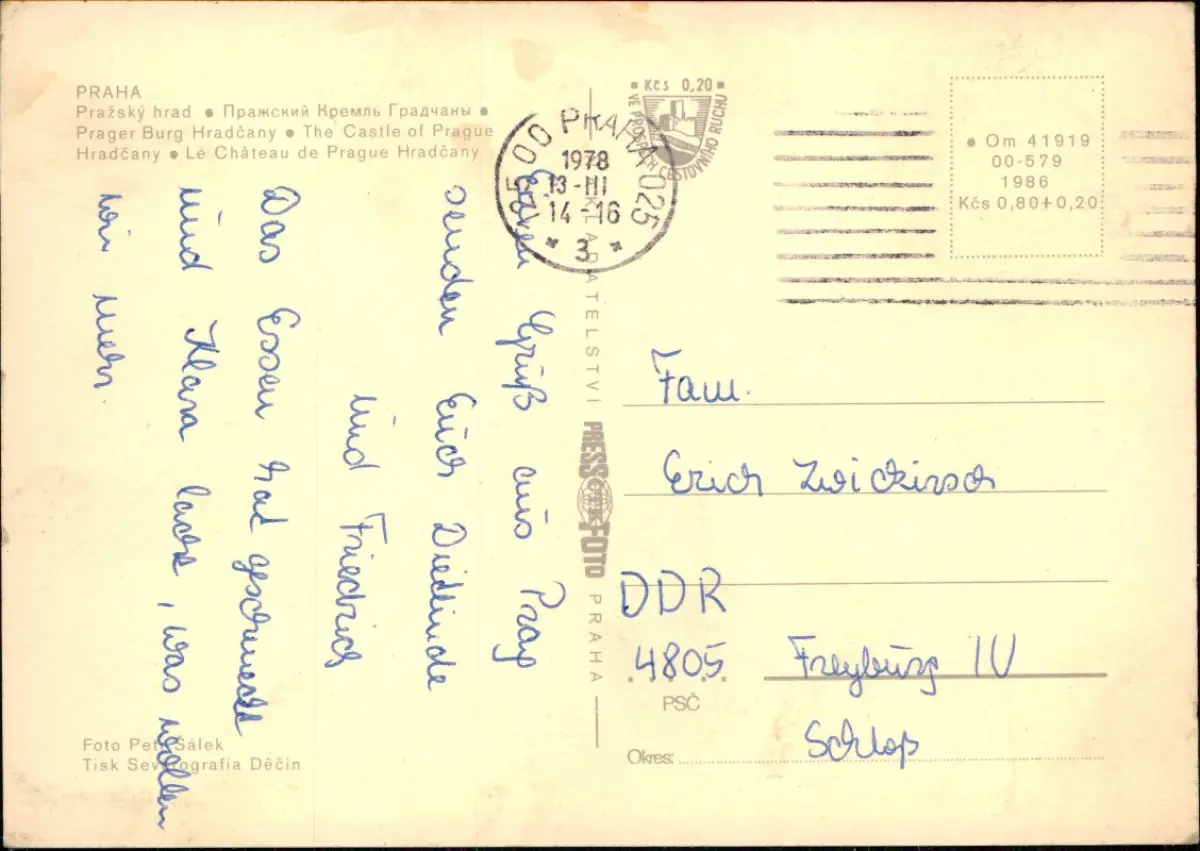 PRAHA
Pražský hrad • Пражский Кремль Градчаны •
Prager Burg Hradčany • The Castle of Prague
Hradčany • Le Château de Prague Hradčany
Einen Gruß aus Prag
senden Euch Dietlinde
und Friedrich
Das Essen hat geschmeckt
und Klara lacht, was wollen
wir mehr.
Foto Petr Sálek
Tisk Severografia Děčín
NAKLADATELSTVÍ PRESSFOTO PRAHA
ČTK
Kčs 0,20
CESTOVNÍHO RUCHU
00 PRAHA 025
1978
13-III
14-16
* 3 *
• Om 41919
00-579
1986
Kčs 0,80+0,20
Fam.
Erich Zwickirsch
DDR
4805
Freyburg IU
PSČ
Schloß
Okres: